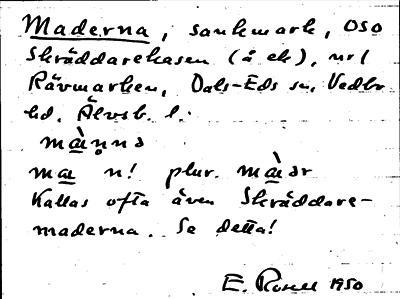 Maderna, sankmark, OSO
Skräddarekasen (å ek), nr 1
Rävmarken, Dals-Eds sn, Vedbo
hd. Älvsb. l.
männa
ma n! plur. màar
Kallas ofta även Skräddare-
maderna. Se detta!
E. Rosell 1950